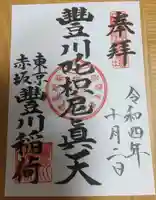 奉拝
令和四年
十月一日
豐川吒枳尼眞天
東京
赤坂
豐川稲荷